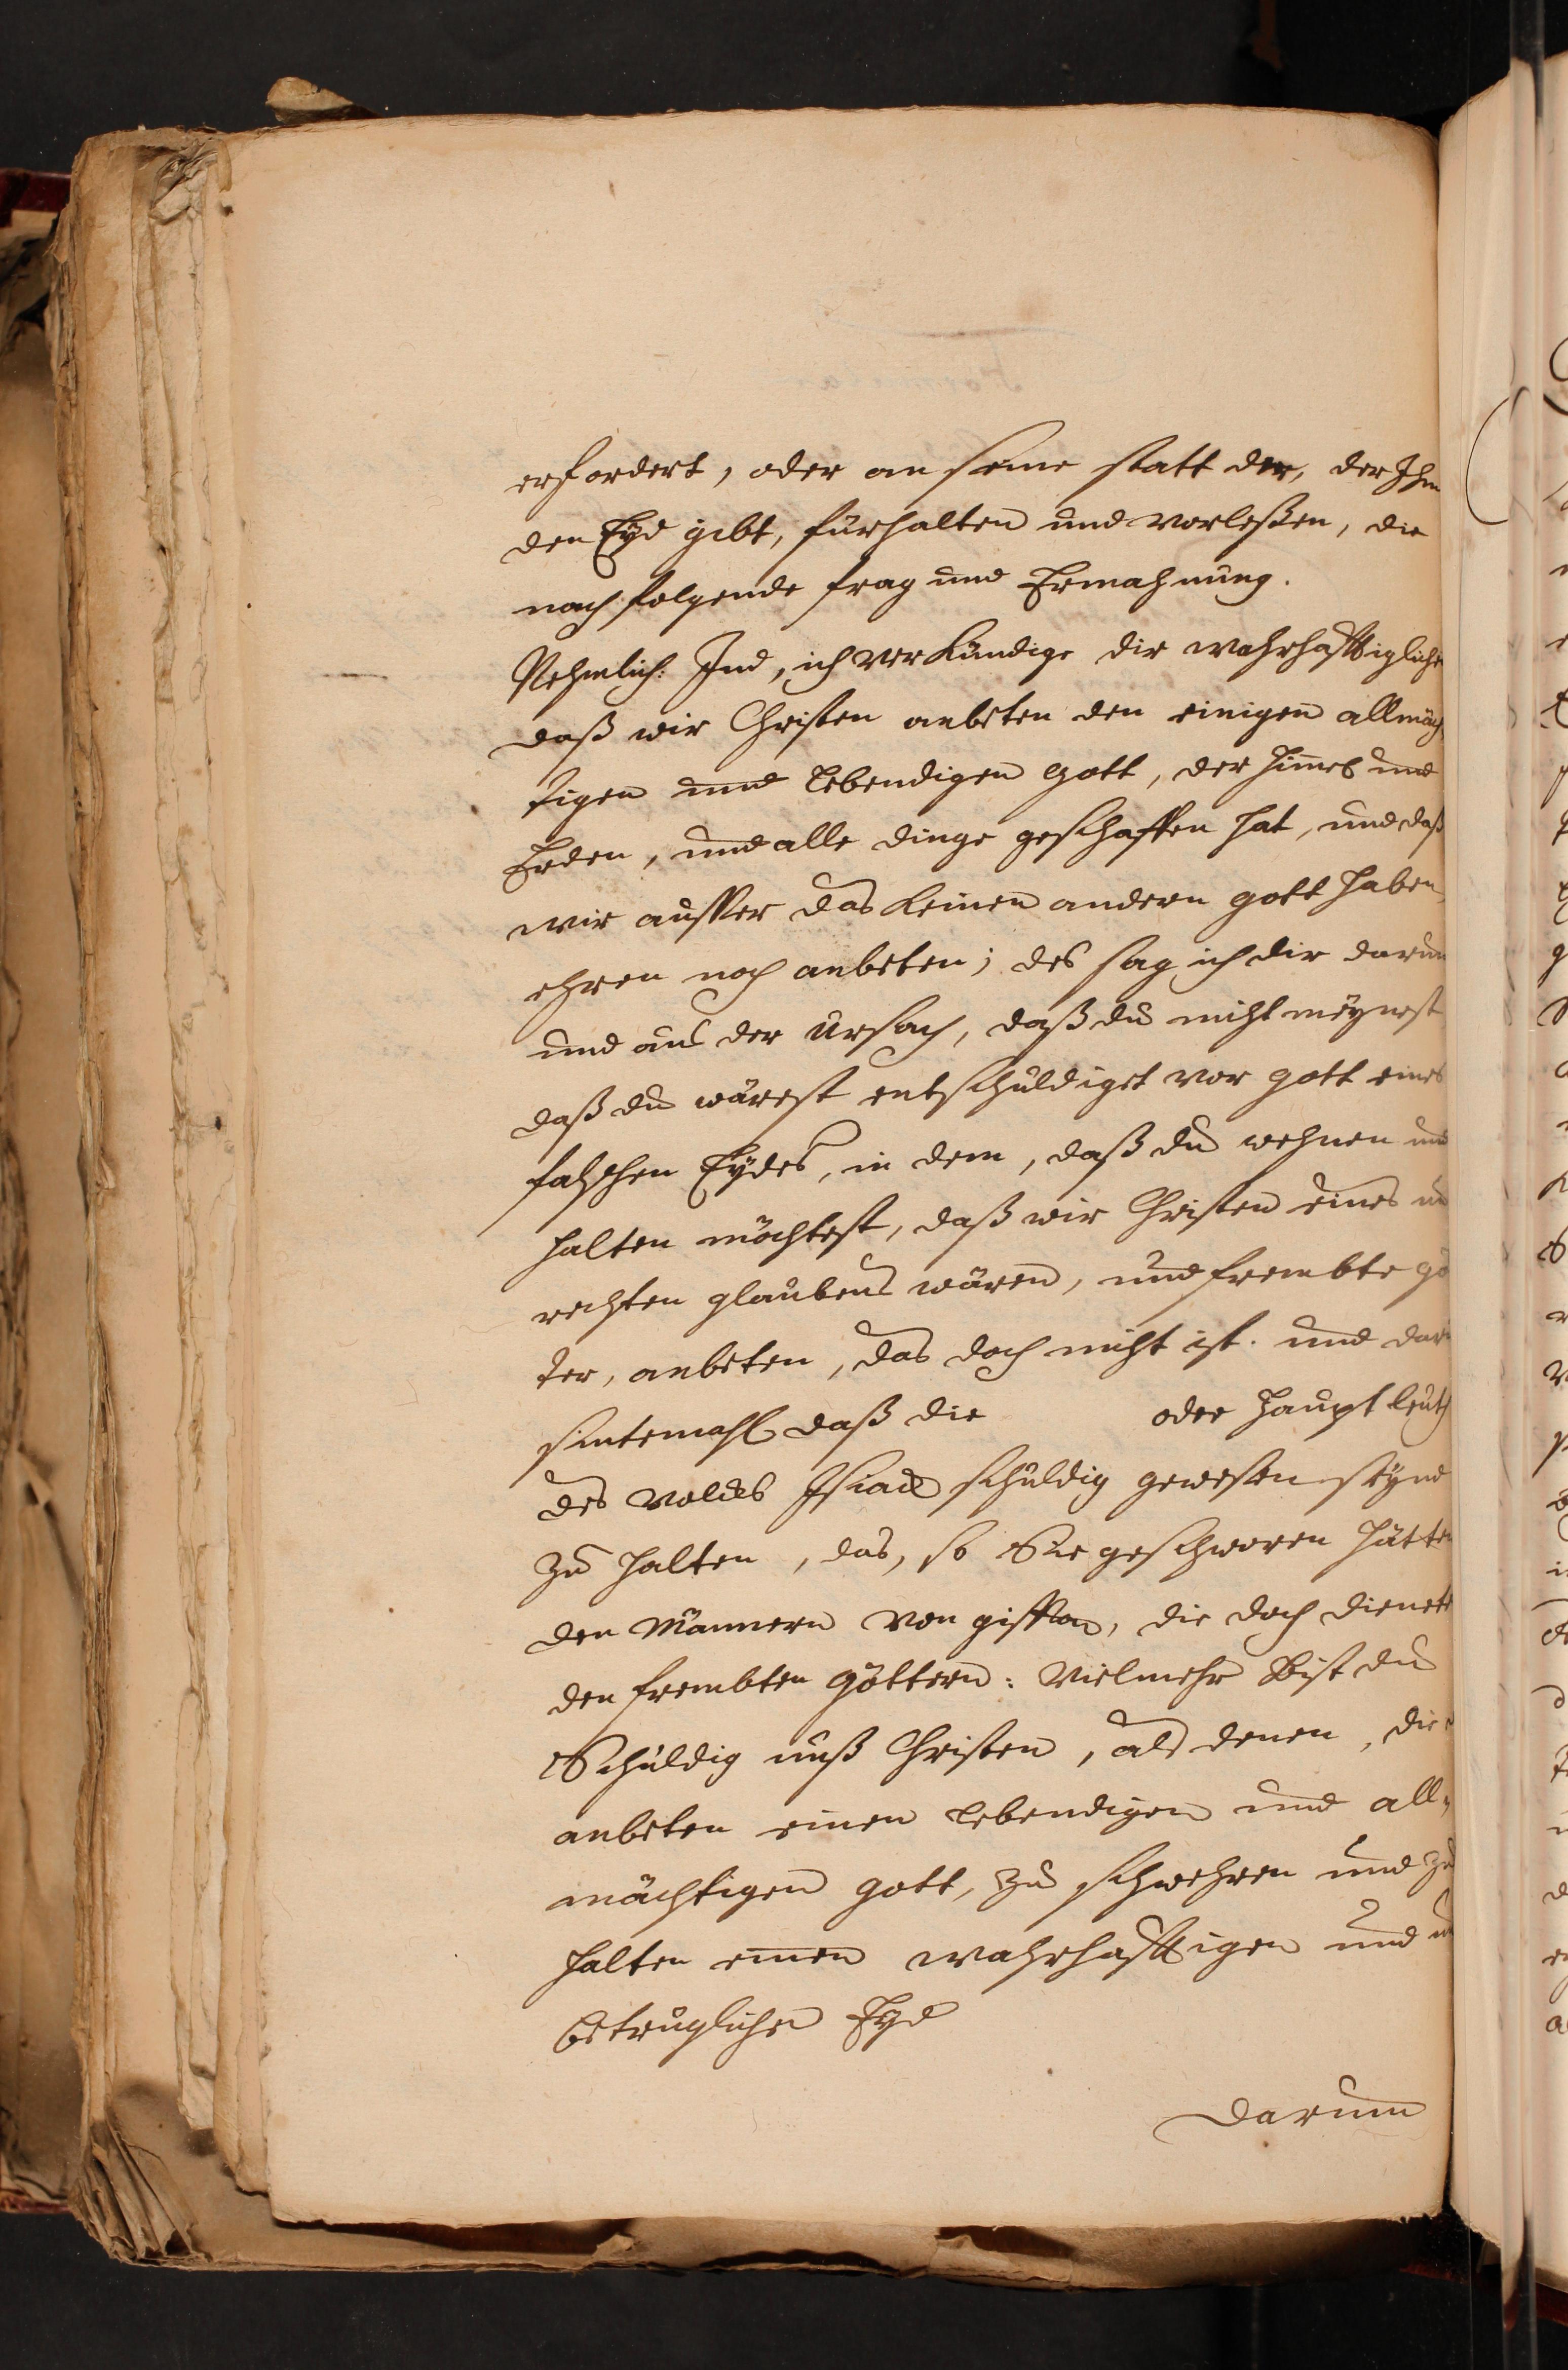 erfordert, oder an seine statt der, der Ihm
den Eyd gibt, fürhalten und vorleßen, die
nachfolgende frag und Ermahnung.
Nehmlich: Jud, ich verkündige dir wahrhafftiglich
daß wir Christen anbeten den einigen allmäch
tigen und lebendigen Gott, der Himel und
Erden, und alle dinge geschaffen hat, und daß
wir ausser das keinen andern gott haben,
ehren noch anbeten; des sag ich dir darum
und aus der Ursach, daß du nicht meynest
daß du wärest entschuldiget vor gott eines
falschen Eydes, in dem, daß du wehnen und
halten möchtest, daß wir Christen eines un
rechten glaubens wären, und frembte gö
ter, anbeten, das doch nicht ist. und dar
sintemahl daß die oder Hauptleuth
des Volckes Israel schuldig gewesen seynd
zu halten, das, so Sie geschworen hätten
den Männern von gisson, die doch dienete
den frembten göttern: vielmehr bist du
Schuldig unß Christen, als denen, die
anbeten einen lebendigen und all-
mächtigen gott, zu schwehren und zu
halten einen wahrhafftigen und un
betruglichen Eyd
Darum